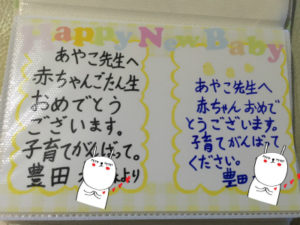 Happy New Baby
あやこ先生へ
赤ちゃんごたん生
おめでとう
ございます。
子育てがんばって。
豊田
より
あやこ先生へ
赤ちゃん おめで
とうございます。
子育てがんばって
ください。
豊田